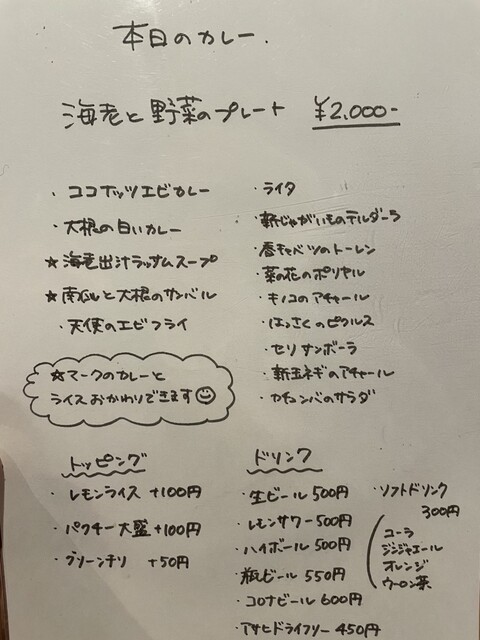 本日のカレー.
海老と野菜のプレート ¥2,000-
・ココナッツエビカレー
・大根の白いカレー
★海老出汁ラッサムスープ
★南瓜と大根のサンバル
・天使のエビフライ
☆マークのカレーと
ライスおかわりできます☺
・ライタ
・新じゃがいものテルダーラ
・春キャベツのトーレン
・菜の花のポリヤル
・キノコのアチャール
・はっさくのピクルス
・セリサンボーラ
・新玉ネギのアチャール
・カチュンバのサラダ
トッピング
・レモンライス +100円
・パクチー大盛 +100円
・グリーンチリ +50円
ドリンク
・生ビール 500円
・レモンサワー 500円
・ハイボール 500円
・瓶ビール 550円
・コロナビール 600円
・アサヒドライフリー 450円
・ソフトドリンク
300円
コーラ
ジンジャエール
オレンジ
ウーロン茶